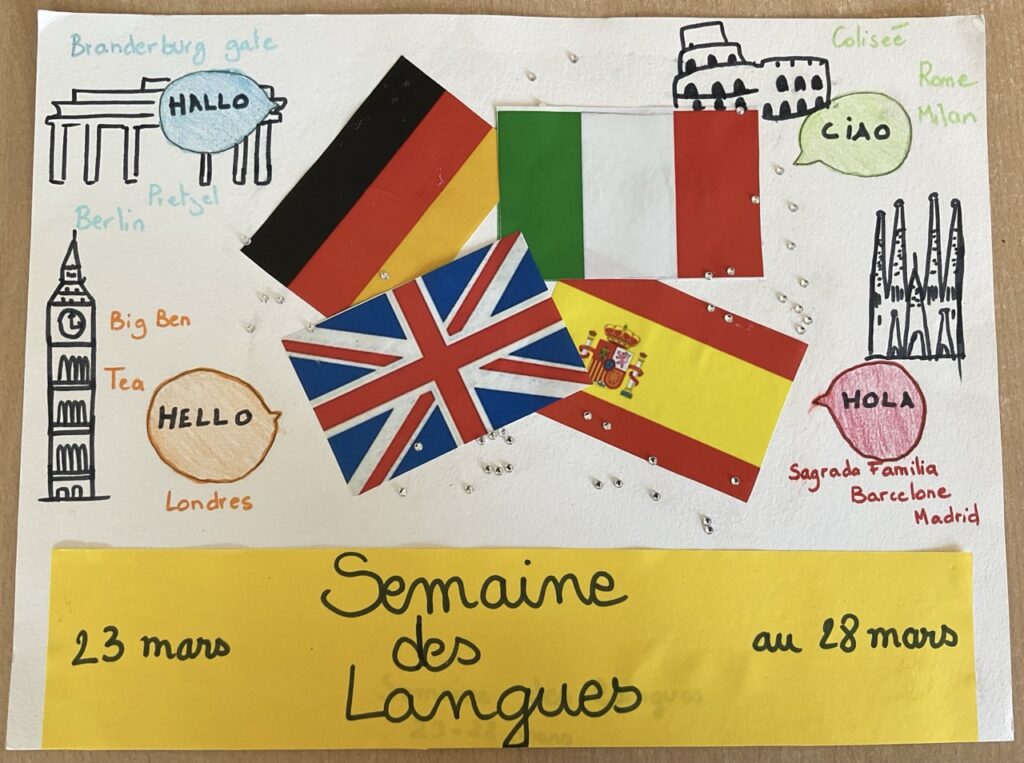 Branderburg gate
HALLO
Pretzel
Berlin
Coliseé
Rome
Milan
CiAO
Big Ben
Tea
HELLO
Londres
HOLA
Sagrada Familia
Barcelone
Madrid
Semaine
des
Langues
23 mars
au 28 mars